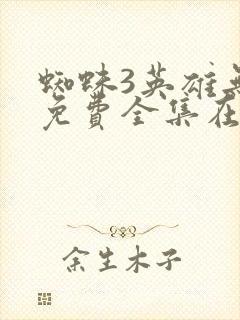 蜘蛛3英雄
免費全集在
余生木子